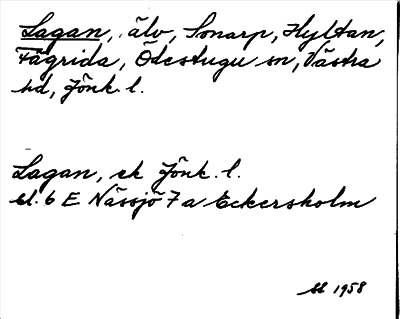 Lagan, älv, Sonarp, Hyltan,
Fägrida, Ödestugu sn, Västra
hd, Jönk. l.
Lagan, ek Jönk. l.
bl. 6 E Nässjö 7 a Eckersholm
1958